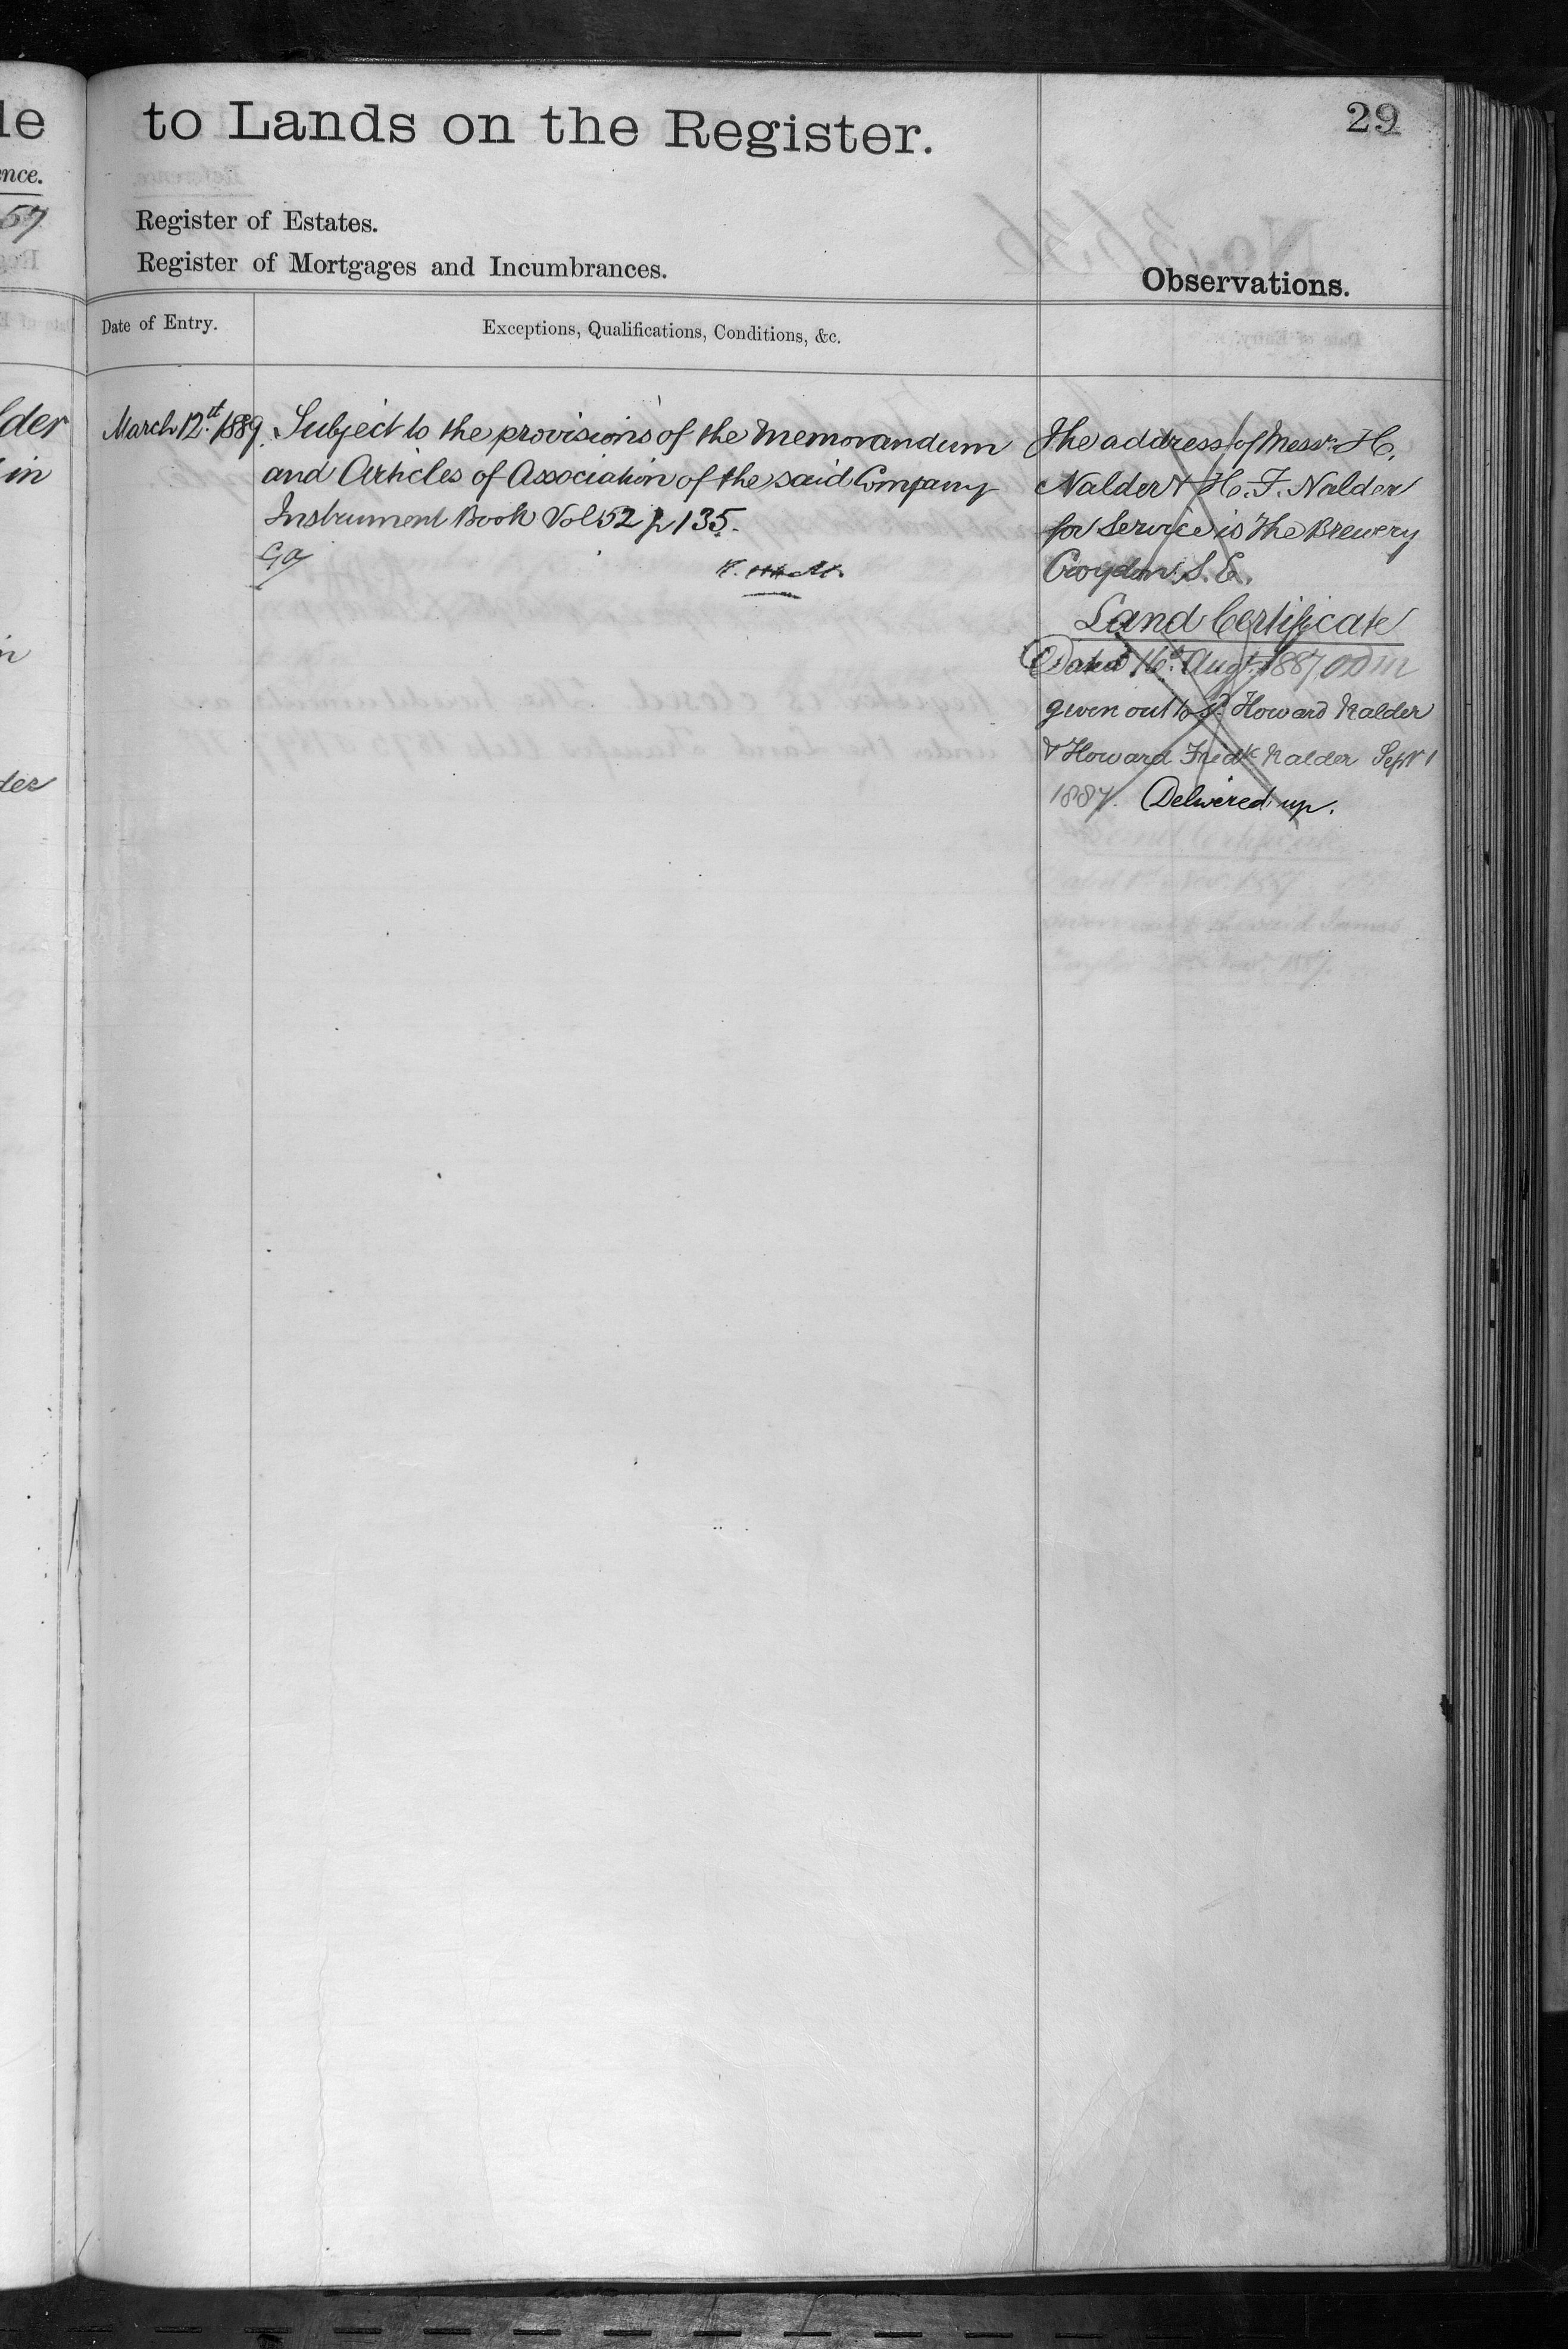 le
nce.
57
to Lands on the Register.
29
Register of Estates.
Register of Mortgages and Incumbrances.
Observations.
Date of Entry.
Exceptions, Qualifications, Conditions, &c.
lder
in
der
March 12th 1889.
Subject to the provisions of the Memorandum
and Articles of Association of the said Company
Instrument Book Vol 52 p 135.
The address of Messrs H.
Nalder & H. F. Nalder
for Service is The Brewery
Croydon S. E.
Land Certificate
Dated 16th Augt 1887
given out to Howard Nalder
& Howard Fredk Nalder Sept 1
1887. Delivered up.